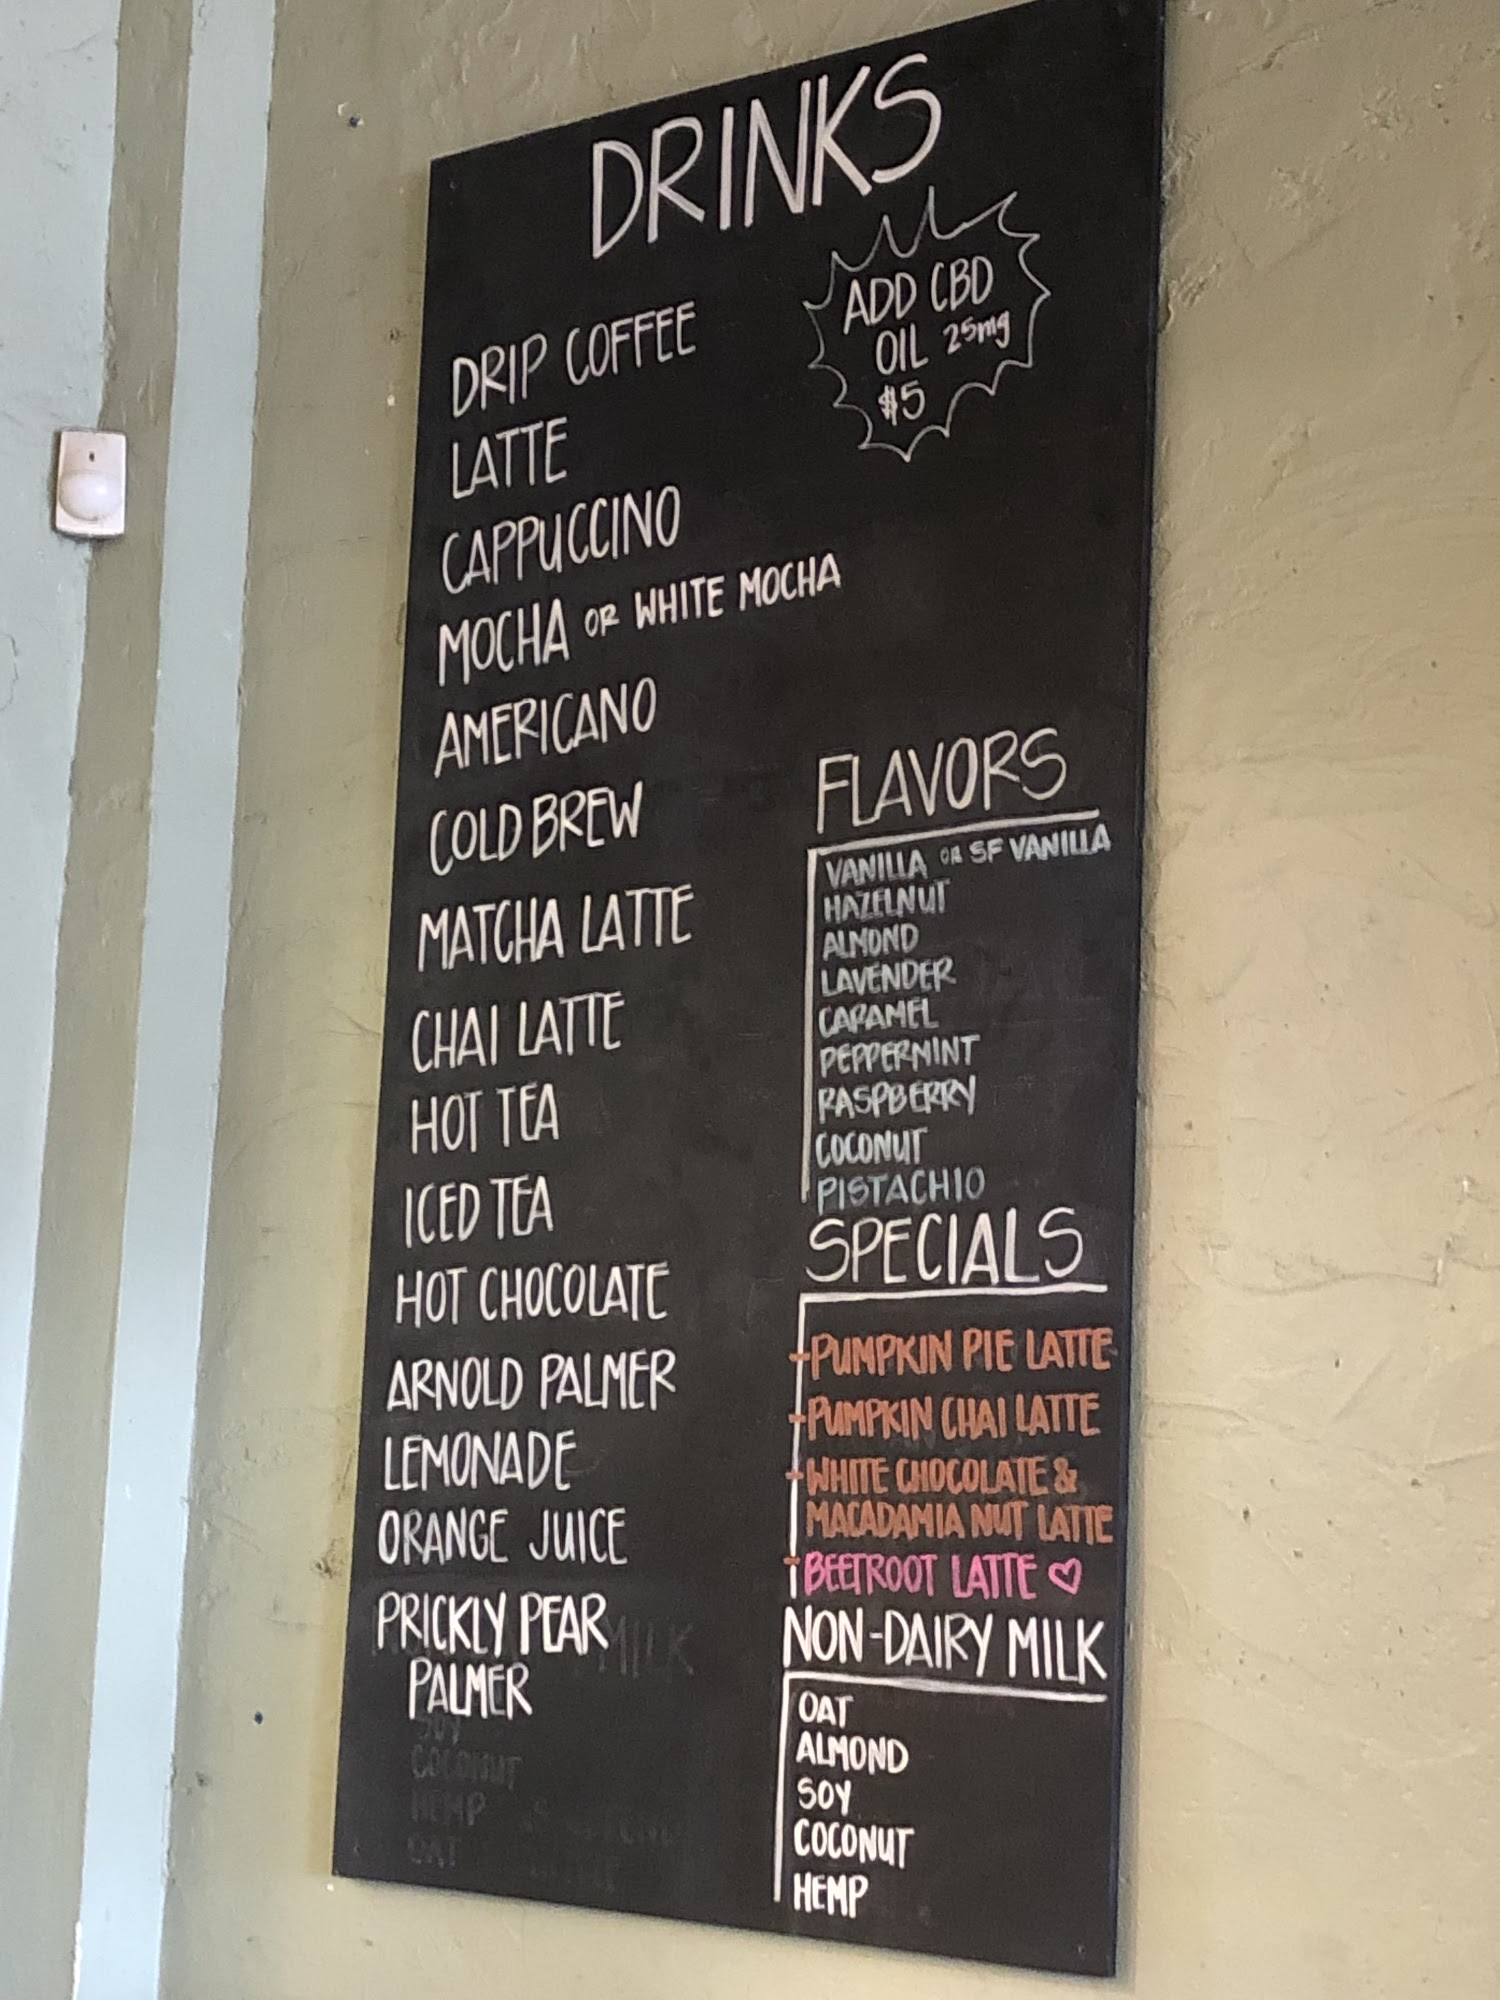 DRINKS
ADD CBD
OIL 25mg
$5
DRIP COFFEE
LATTE
CAPPUCCINO
MOCHA OR WHITE MOCHA
AMERICANO
COLD BREW
MATCHA LATTE
CHAI LATTE
HOT TEA
ICED TEA
HOT CHOCOLATE
ARNOLD PALMER
LEMONADE
ORANGE JUICE
PRICKLY PEAR
PALMER
MILK
SOY
COCONUT
HEMP
OAT
FLAVORS
VANILLA OR SF VANILLA
HAZELNUT
ALMOND
LAVENDER
CARAMEL
PEPPERMINT
RASPBERRY
COCONUT
PISTACHIO
SPECIALS
PUMPKIN PIE LATTE
PUMPKIN CHAI LATTE
WHITE CHOCOLATE &
MACADAMIA NUT LATTE
BEETROOT LATTE ♡
NON-DAIRY MILK
OAT
ALMOND
SOY
COCONUT
HEMP